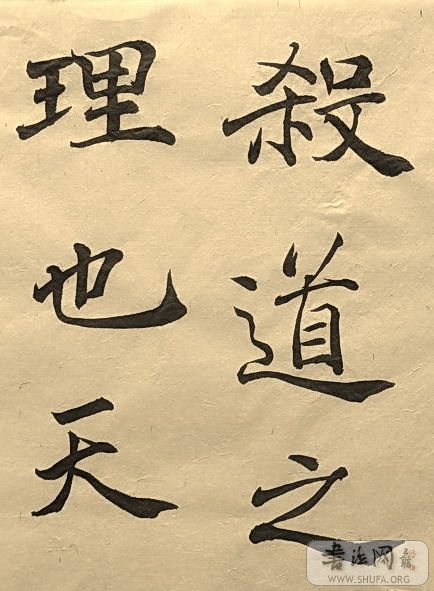 殺道之
理也天
書法网
WWW.SHUFA.ORG